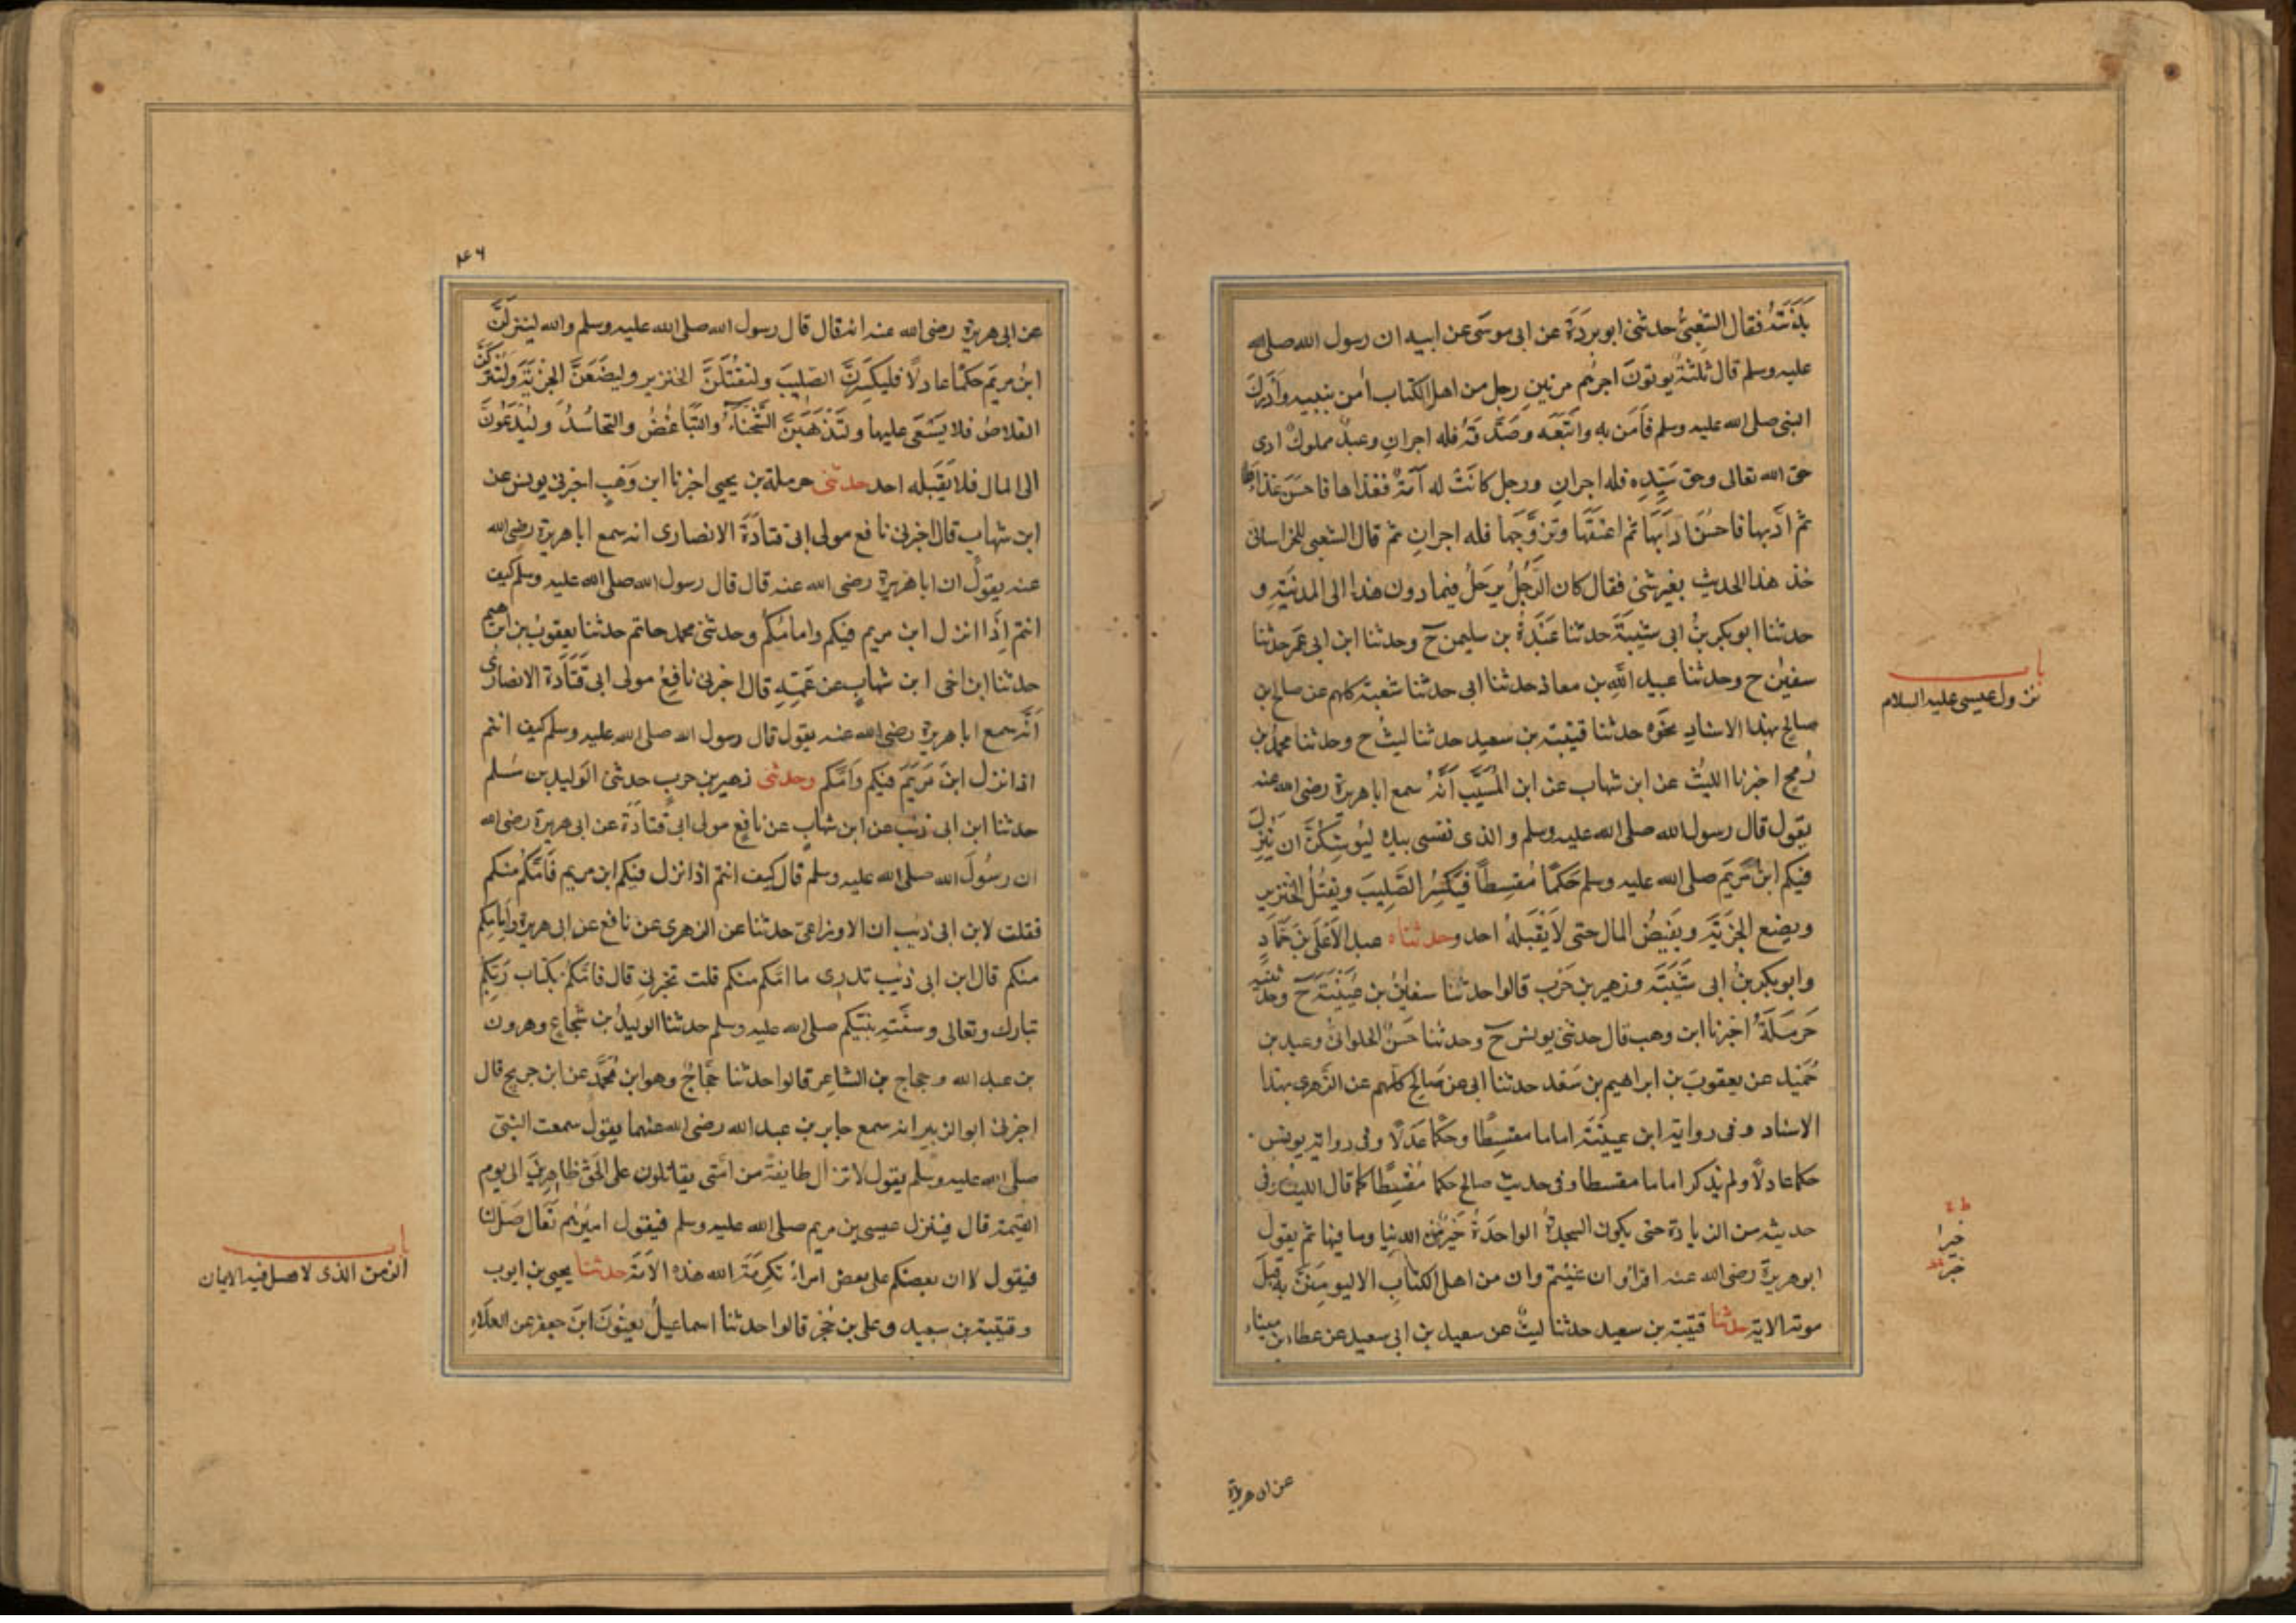 بَدَنَتَهُ فقال الشَّعبىُّ حدثنى ابو بردَةَ عن ابى موسَى عن ابيه ان رسول الله صلى الله
عليه وسلم قال ثلثةٌ يوتون اجرهم مرتين رجل من اهل الكتاب اٰمن بنبيه وادرك
النبى صلى الله عليه وسلم فاٰمن به واتبعه وصدّقهُ فله اجرانِ وعبدٌ مملوكٌ ادى
حق الله تعالى وحق سيّدِه فله اجرانِ ورجل كانَتْ له اَمَةٌ فغذاها فاحسَنَ غذاءها
ثم ادّبها فاحسَنَ ادَبَهَا ثم اعتقَهَا وتزوَّجها فله اجرانِ ثم قال الشعبى للخراسانى
خذ هذا الحديث بغير شئ فقال كان الرَّجُلُ يرحَلُ فيما دون هذا الى المدينَةِ و
حدثنا ابو بكر بنُ ابى شيبَةَ حدثنا عَبْدَةُ بن سليمن ح وحدثنا ابن ابى عمر حدثنا
سفيٰن ح وحدثنا عبيد اللهِ بن معاذ حدثنا ابى حدثنا شعبة كلهم عن صالح بن
صالح بهذا الاسنادِ نحوَه حدثنا قتيبة بن سعيد حدثنا ليثٌ ح وحدثنا محمدُ بن
رُمحٍ اخبرنا الليثُ عن ابن شهاب عن ابن المُسَيَّبِ اَنَّهُ سمع ابا هريرة رضى الله عنه
يقول قال رسول الله صلى الله عليه وسلم والذى نفسى بيده ليُوشِكَنَّ ان يَنْزِلَ
فيكم ابنُ مَرْيَمَ صلى الله عليه وسلم حَكَمًا مُقسِطًا فَيَكْسِرُ الصَّلِيبَ ويَقتُلُ الخنزير
ويضع الجزيَةَ ويَفيضُ المال حتى لا يَقْبَلَهُ احد وحدثناه عبد الاَعْلَى بنُ حَمّادٍ
وابو بكر بنُ ابى شَيْبَةَ وزهير بن حَرْب قالوا حدثنا سفيٰنُ بن عُيَيْنَةَ ح وحدثنيه
حَرمَلَةُ اخبرنا ابن وهب قال حدثنى يونس ح وحدثنا حَسَنٌ الحلوانىُّ وعبد بن
حُمَيْد عن يعقوبَ بن ابراهيم بن سَعْد حدثنا ابى عن صَالح كلهم عن الزهرى بهذا
الاسناد وفى رواية ابن عيينَةَ اماما مقسِطًا وحكمًا عَدْلًا وفى رواية يونس
حكما عادلًا ولم يذكر اماما مقسطا وفى حديث صالح حكما مُقْسِطًا كما قال الليث وفى
حديثه من الزيادة حتى يكون السجدةُ الواحدَةُ خَيْرٌ مِّنَ الدنيا وما فيها ثم يقول
ابو هريرة رضى الله عنه اقرؤا ان شئتم وان من اهل الكتاب الا ليومِنَنَّ به قبل
موته الاية حدثنا قتيبة بن سعيد حدثنا ليثٌ عن سعيد بن ابى سعيد عن عطاء بن ميناء
باب
نزول عيسى عليه السلام
خيرا
خير
عن ابى هريرة
٤٦
عن ابى هريرة رضى الله عنه انه قال قال رسول الله صلى الله عليه وسلم والله لينزلَنَّ
ابنُ مريَم حَكَمًا عادلًا فليكسِرَنَّ الصليبَ ولَيَقْتُلَنَّ الخنزير وليضَعَنَّ الجزيَةَ ولَتُتْرَكَنَّ
القلاصُ فلا يُسْعَى عليها ولَتَذْهَبَنَّ الشَّحْنَاءُ والتَّبَاغُضُ والتحاسُدُ ولَيَدْعُوَنَّ
الى المال فلا يَقْبَله احد حدثنى حرملة بن يحيى اخبرنا ابن وَهْبٍ اخبرنى يونس عن
ابن شهاب قال اخبرنى نافع مولى ابى قتادَةَ الانصارى انه سمع ابا هريرة رضى الله
عنه يقول ان ابا هريرة رضى الله عنه قال قال رسول الله صلى الله عليه وسلم كيف
انتم اِذَا انزل ابن مريم فيكم وامامُكُم وحدثنى محمد حاتم حدثنا يعقوبُ بن ابراهيم
حدثنا ابن اخى ابن شهابٍ عن عَمِّهِ قال اخبرنى نافعٌ مولى ابى قتَادَة الانصارى
اَنَّه سمع ابا هريرة رضى الله عنه يقول قال رسول الله صلى الله عليه وسلم كيف انتم
اذا نزل ابنُ مَرْيَمَ فيكم وَاَمَّكم وحدثنى زهير بن حرب حدثنى الوليد بن مسلم
حدثنا ابن ابى ذئب عن ابن شهاب عن نافِعٍ مولى ابى قتادَة عن ابى هريرة رضى الله
ان رسُولَ الله صلى الله عليه وسلم قال كيف انتم اذا نزل فيكم ابن مريم فَاَمَّكُم منكم
فقلت لابن ابى ذئب ان الاوزاعىّ حدثنا عن الزهرى عن نافع عن ابى هريرة وامامكم
منكم قال ابن ابى ذئب تدرى ما امّكم منكم قلت تخبرنى قال فامّكم بكتاب رَبِّكُم
تبارك وتعالى وسنَّتهِ نبيّكم صلى الله عليه وسلم حدثنا الوليدُ بن شُجَاعٍ وهرون
بن عبد الله وحجاج بن الشاعر قالوا حدثنا حَجّاجٌ وهو ابن مُحَمَّدٍ عن ابن جريج قال
اخبرنى ابو الزبير انه سمع جابر بن عبد الله رضى الله عنهما يقول سمعت النبىّ
صلّى الله عليه وسلم يقول لا تزال طايفةٌ من امّتى يقاتلون على الحقّ ظاهرينَ الى يوم
القيمة قال فينزل عيسى بن مريم صلى الله عليه وسلم فيقول اميرُهم تَعَالَ صَلِّ لنا
فيقول لا ان بعضكم على بعض امراءُ تكرِمَةَ الله هذه الاُمَّةَ حدثنا يحيى بن ايوب
وقتيبة بن سعيد وعلى بن حُجْرٍ قالوا حدثنا اسماعيلُ يعنونَ ابنَ جعفر عن العلاءِ
باب
الزمن الذى لا يقبل فيه الايمان